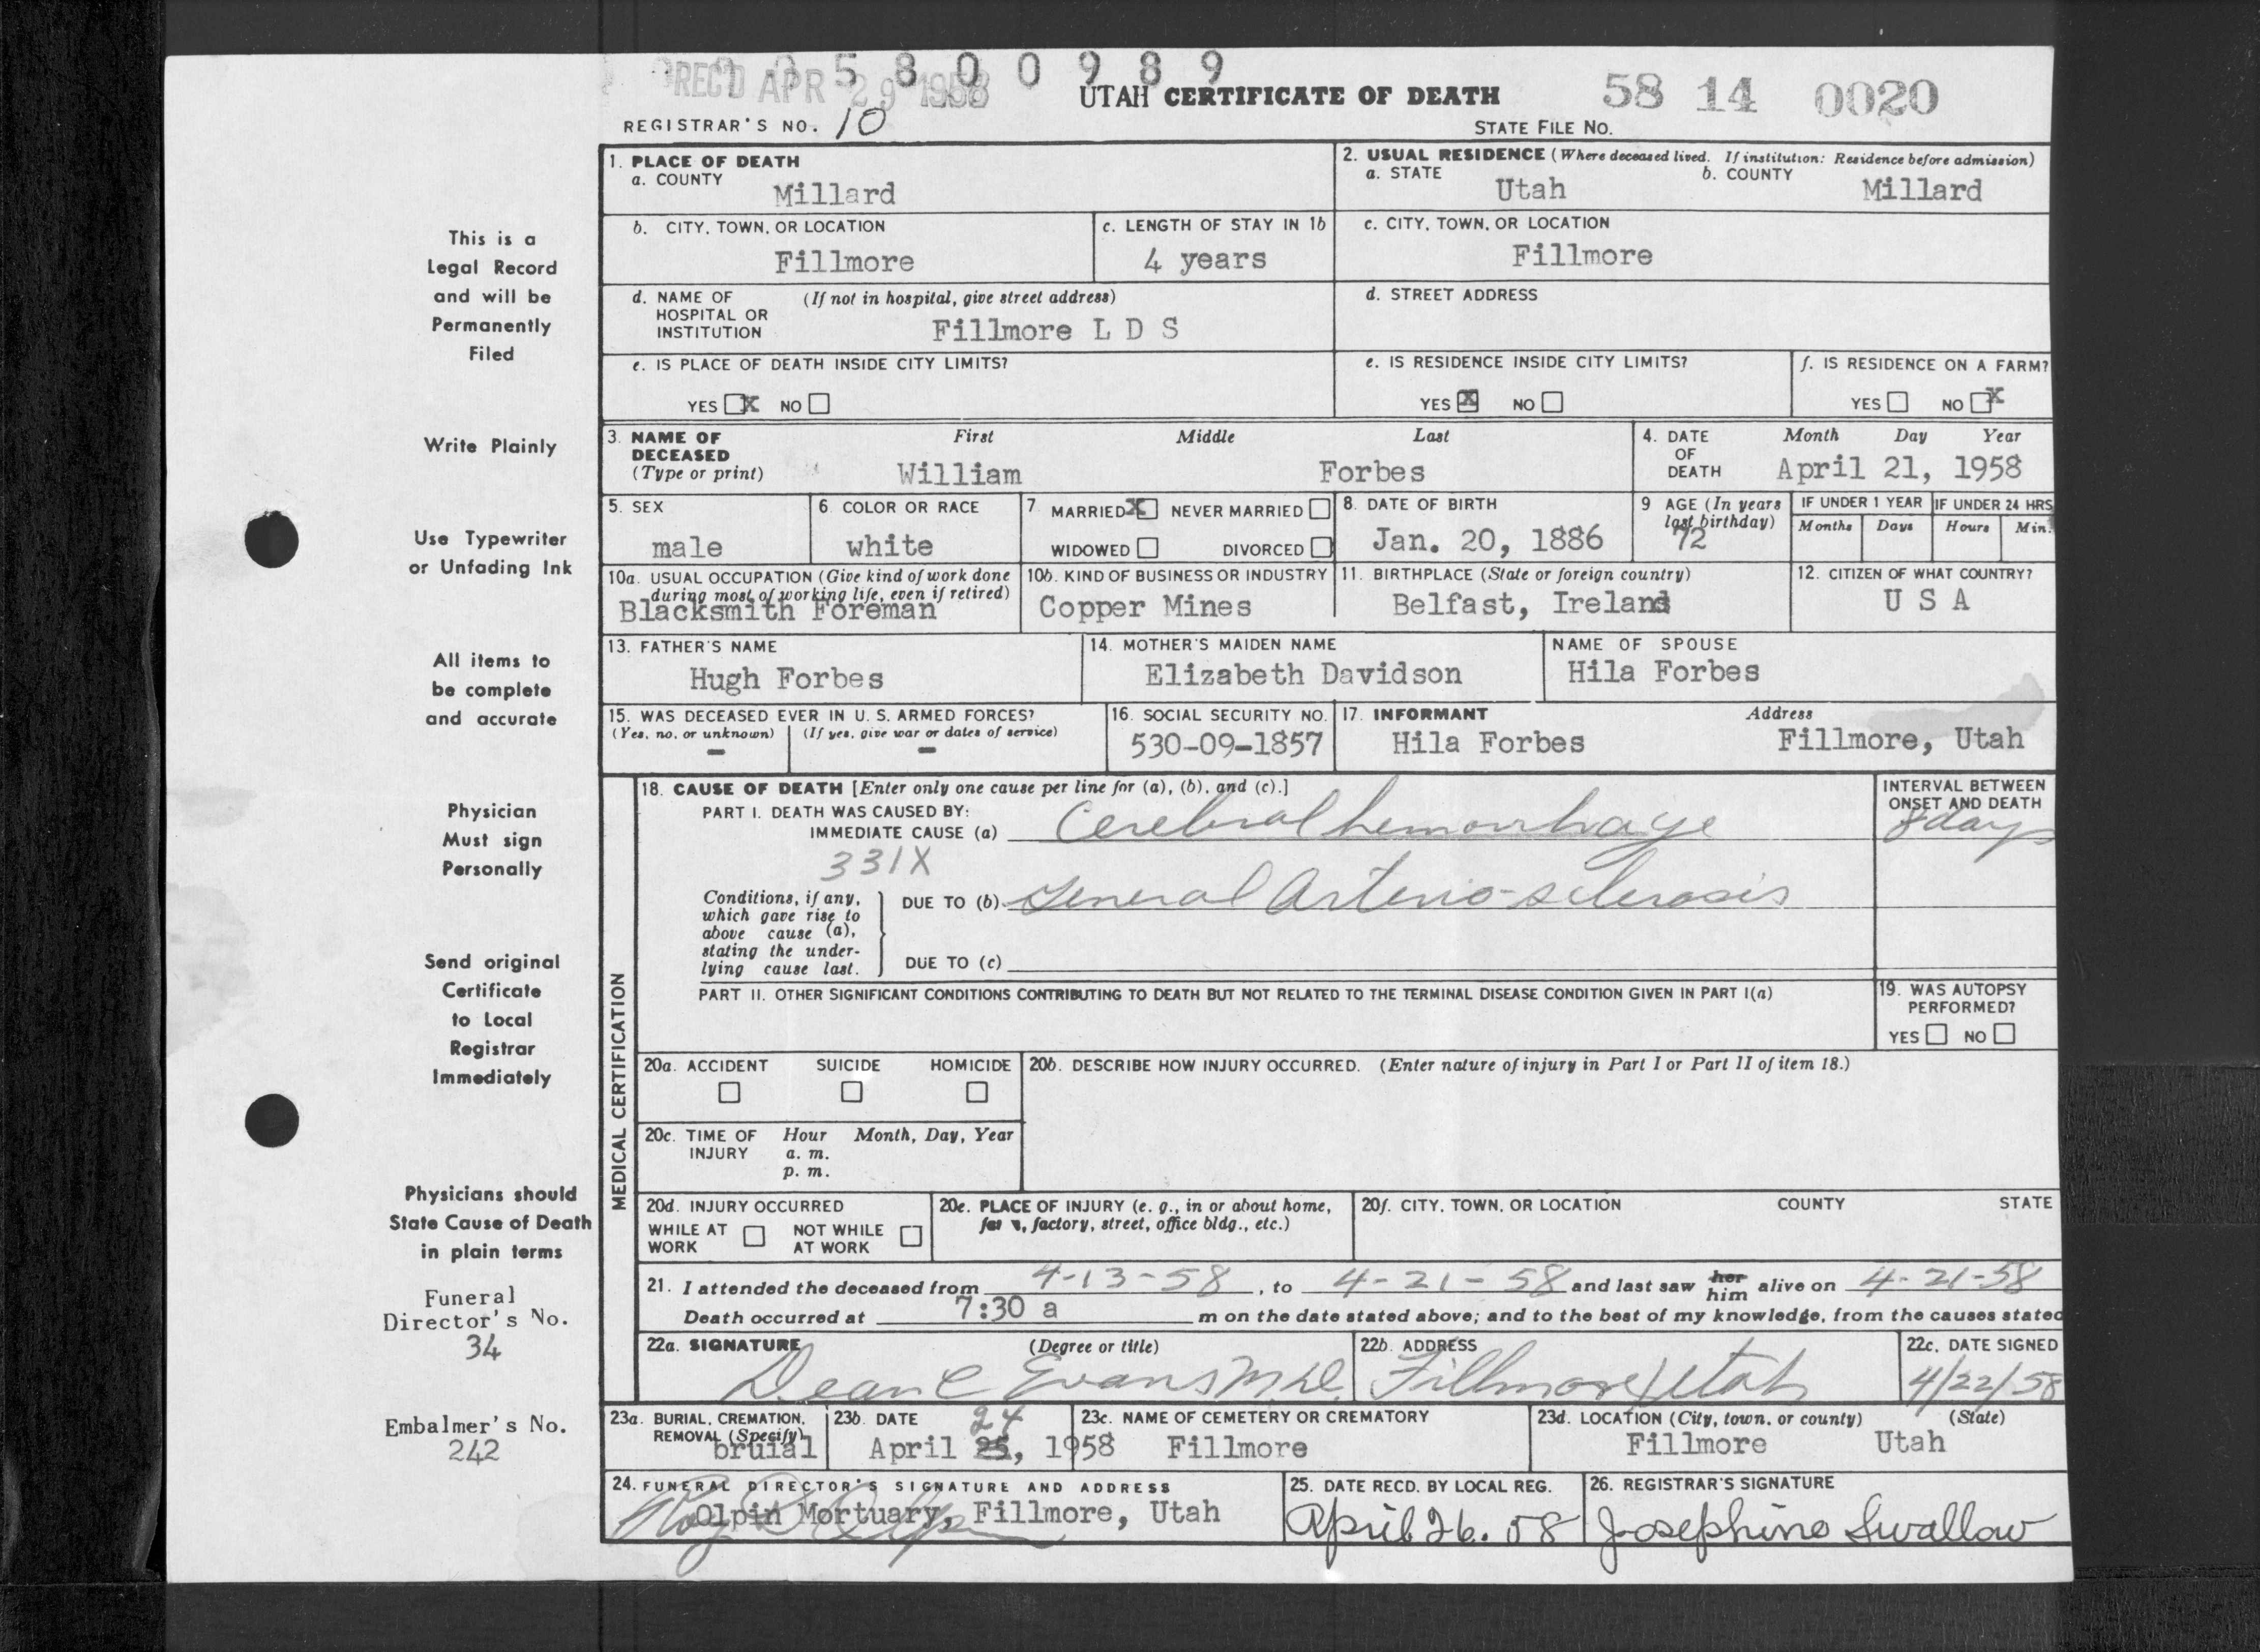 5 8 0 0 9 8 9
REC'D APR 29 1958
UTAH CERTIFICATE OF DEATH
58 14 0020
REGISTRAR'S NO. 10
STATE FILE NO.
1. PLACE OF DEATH
a. COUNTY
Millard
2. USUAL RESIDENCE (Where deceased lived. If institution: Residence before admission)
a. STATE
Utah
b. COUNTY
Millard
b. CITY, TOWN, OR LOCATION
Fillmore
c. LENGTH OF STAY IN 1b
4 years
c. CITY, TOWN, OR LOCATION
Fillmore
d. NAME OF HOSPITAL OR INSTITUTION
(If not in hospital, give street address)
Fillmore L D S
d. STREET ADDRESS
e. IS PLACE OF DEATH INSIDE CITY LIMITS?
YES X NO
e. IS RESIDENCE INSIDE CITY LIMITS?
YES X NO
f. IS RESIDENCE ON A FARM?
YES NO X
3. NAME OF DECEASED
(Type or print)
First Middle Last
William Forbes
4. DATE OF DEATH
Month Day Year
April 21, 1958
5. SEX
male
6. COLOR OR RACE
white
7. MARRIED X NEVER MARRIED
WIDOWED DIVORCED
8. DATE OF BIRTH
Jan. 20, 1886
9 AGE (In years last birthday)
72
IF UNDER 1 YEAR
Months Days
IF UNDER 24 HRS
Hours Min.
10a. USUAL OCCUPATION (Give kind of work done during most of working life, even if retired)
Blacksmith Foreman
10b. KIND OF BUSINESS OR INDUSTRY
Copper Mines
11. BIRTHPLACE (State or foreign country)
Belfast, Ireland
12. CITIZEN OF WHAT COUNTRY?
U S A
13. FATHER'S NAME
Hugh Forbes
14. MOTHER'S MAIDEN NAME
Elizabeth Davidson
NAME OF SPOUSE
Hila Forbes
15. WAS DECEASED EVER IN U. S. ARMED FORCES?
(Yes, no, or unknown) (If yes, give war or dates of service)
– –
16. SOCIAL SECURITY NO.
530-09-1857
17. INFORMANT
Hila Forbes
Address
Fillmore, Utah
MEDICAL CERTIFICATION
18. CAUSE OF DEATH [Enter only one cause per line for (a), (b), and (c).]
PART I. DEATH WAS CAUSED BY:
IMMEDIATE CAUSE (a) Cerebral hemorrhage
INTERVAL BETWEEN ONSET AND DEATH
8 days
331X
Conditions, if any, which gave rise to above cause (a), stating the underlying cause last.
DUE TO (b) General Arterio-sclerosis
DUE TO (c)
PART II. OTHER SIGNIFICANT CONDITIONS CONTRIBUTING TO DEATH BUT NOT RELATED TO THE TERMINAL DISEASE CONDITION GIVEN IN PART I(a)
19. WAS AUTOPSY PERFORMED?
YES NO
20a. ACCIDENT SUICIDE HOMICIDE
20b. DESCRIBE HOW INJURY OCCURRED. (Enter nature of injury in Part I or Part II of item 18.)
20c. TIME OF INJURY
Hour Month, Day, Year
a. m.
p. m.
20d. INJURY OCCURRED
WHILE AT WORK NOT WHILE AT WORK
20e. PLACE OF INJURY (e. g., in or about home, farm, factory, street, office bldg., etc.)
20f. CITY, TOWN, OR LOCATION COUNTY STATE
21. I attended the deceased from 4-13-58, to 4-21-58 and last saw her him alive on 4-21-58
Death occurred at 7:30 a m on the date stated above; and to the best of my knowledge, from the causes stated
22a. SIGNATURE (Degree or title)
Dean C Evans M.D.
22b. ADDRESS
Fillmore Utah
22c. DATE SIGNED
4/22/58
23a. BURIAL, CREMATION, REMOVAL (Specify)
bruial
23b. DATE
24
April 25, 1958
23c. NAME OF CEMETERY OR CREMATORY
Fillmore
23d. LOCATION (City, town, or county) (State)
Fillmore Utah
24. FUNERAL DIRECTOR'S SIGNATURE AND ADDRESS
Olpin Mortuary, Fillmore, Utah
25. DATE RECD. BY LOCAL REG.
April 26. 58
26. REGISTRAR'S SIGNATURE
Josephine Swallow
This is a
Legal Record
and will be
Permanently
Filed
Write Plainly
Use Typewriter
or Unfading Ink
All items to
be complete
and accurate
Physician
Must sign
Personally
Send original
Certificate
to Local
Registrar
Immediately
Physicians should
State Cause of Death
in plain terms
Funeral
Director's No.
34
Embalmer's No.
242